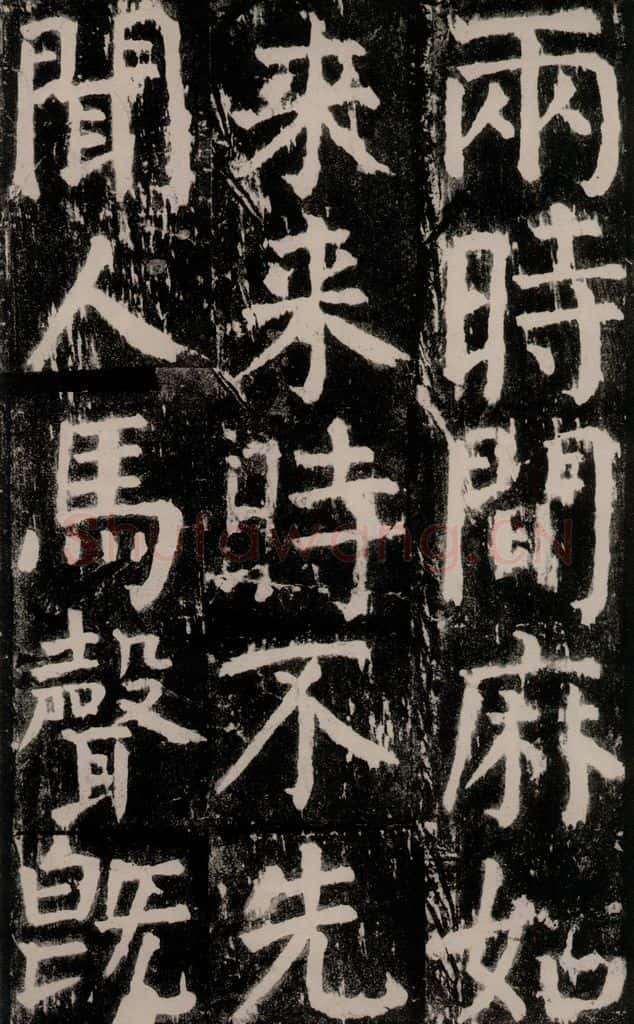 兩時間麻如
来来時不先
聞人馬聲既
Shufawang.CN